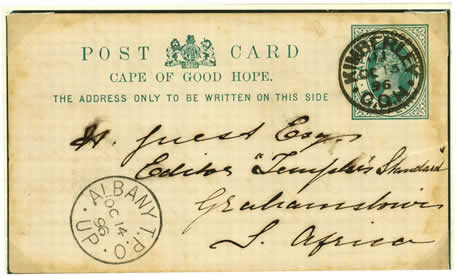 POST CARD
CAPE OF GOOD HOPE.
THE ADDRESS ONLY TO BE WRITTEN ON THIS SIDE
KIMBERLEY
OC
96
C.G.H.
H. Guest Esq.
Editor "Templar's Standard"
Grahamstown
S. Africa
ALBANY T.P.O.
OC 14
96
UP